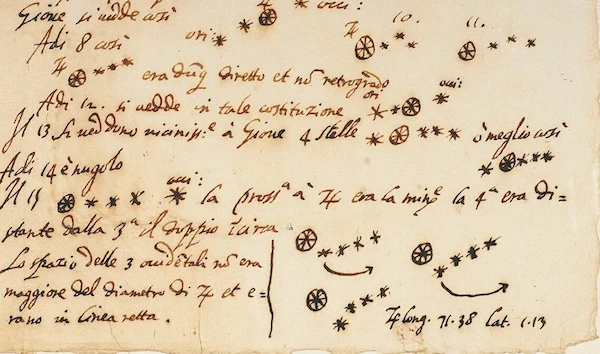 Gione si vedde così ♃ occi:
Adi 8 così ori: ♃ 10. 11.
♃ era dũq̃ diretto et nõ retrogrado
Adi 12. si vedde in tale costituzione ori occi:
Il 13 si veddono vicinissᵉ à Gione 4 stelle ò meglio così
Adi 14 è nugolo
Il 15 occi: la prossᵃ à ♃ era la minᵉ la 4ᵃ era di=
stante dalla 3ᵃ il doppio ĩcirca
Lo spazio delle 3 occidẽtali nõ era
maggiore del diametro di ♃ et e-
rano in linea retta. ♃ long. 71.38 lat. 1.13